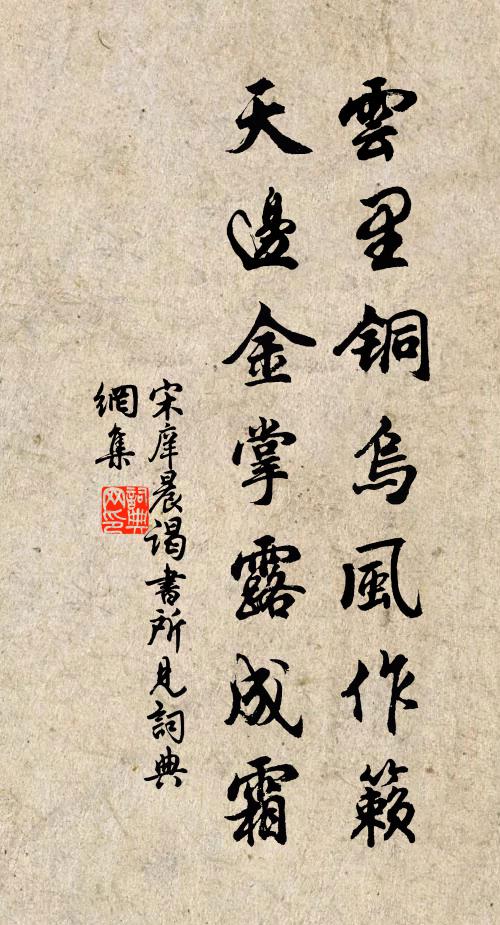 雲里铜烏風作籟
天邊金掌露成霜
宋庠晨謁書所見詞典
網集
詞典网印